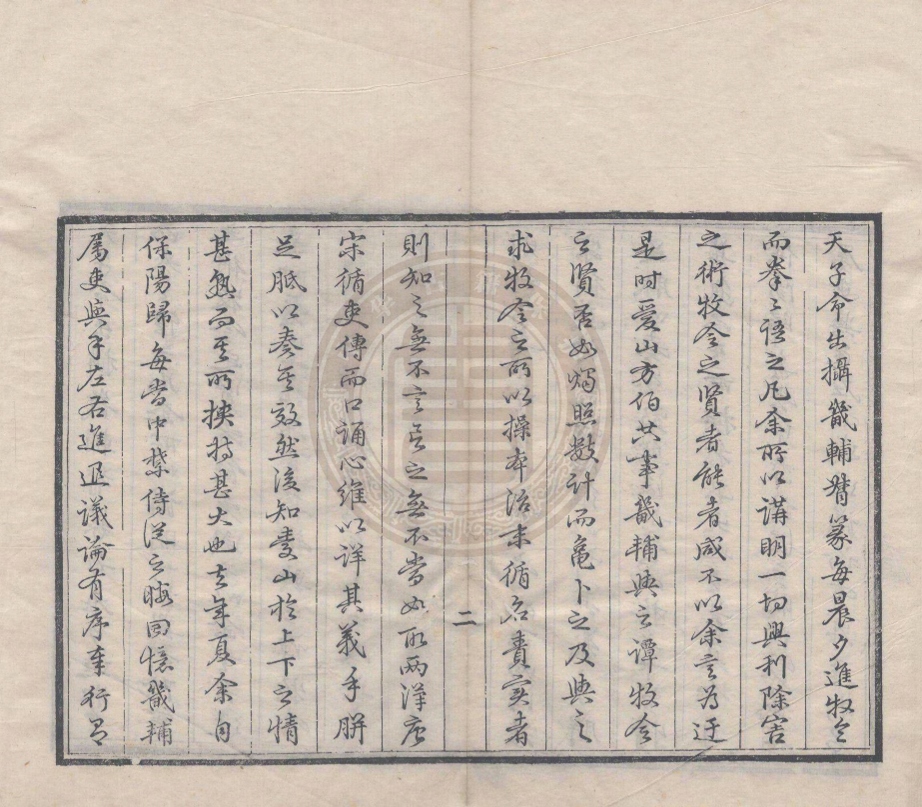 天子命出攝畿輔督篆每晨夕進牧令
而拳之語之凡余所以講明一切興利除害
之術牧令之賢者能者咸不以余言為迂
是時愛山方伯共事畿輔與之譚牧令
之賢否如燭照數計而龜卜之及與之
求牧令之所以操本治末循名責實者
二
則知之無不言言之無不當如取兩漢唐
宋循吏傳而口誦心維以詳其義手胼
足胝以奏其效然後知愛山於上下之情
甚熟而其所挾持甚大也去年夏余自
保陽歸每當中禁侍從之暇回憶畿輔
屬吏與手左右進退議論有序車行